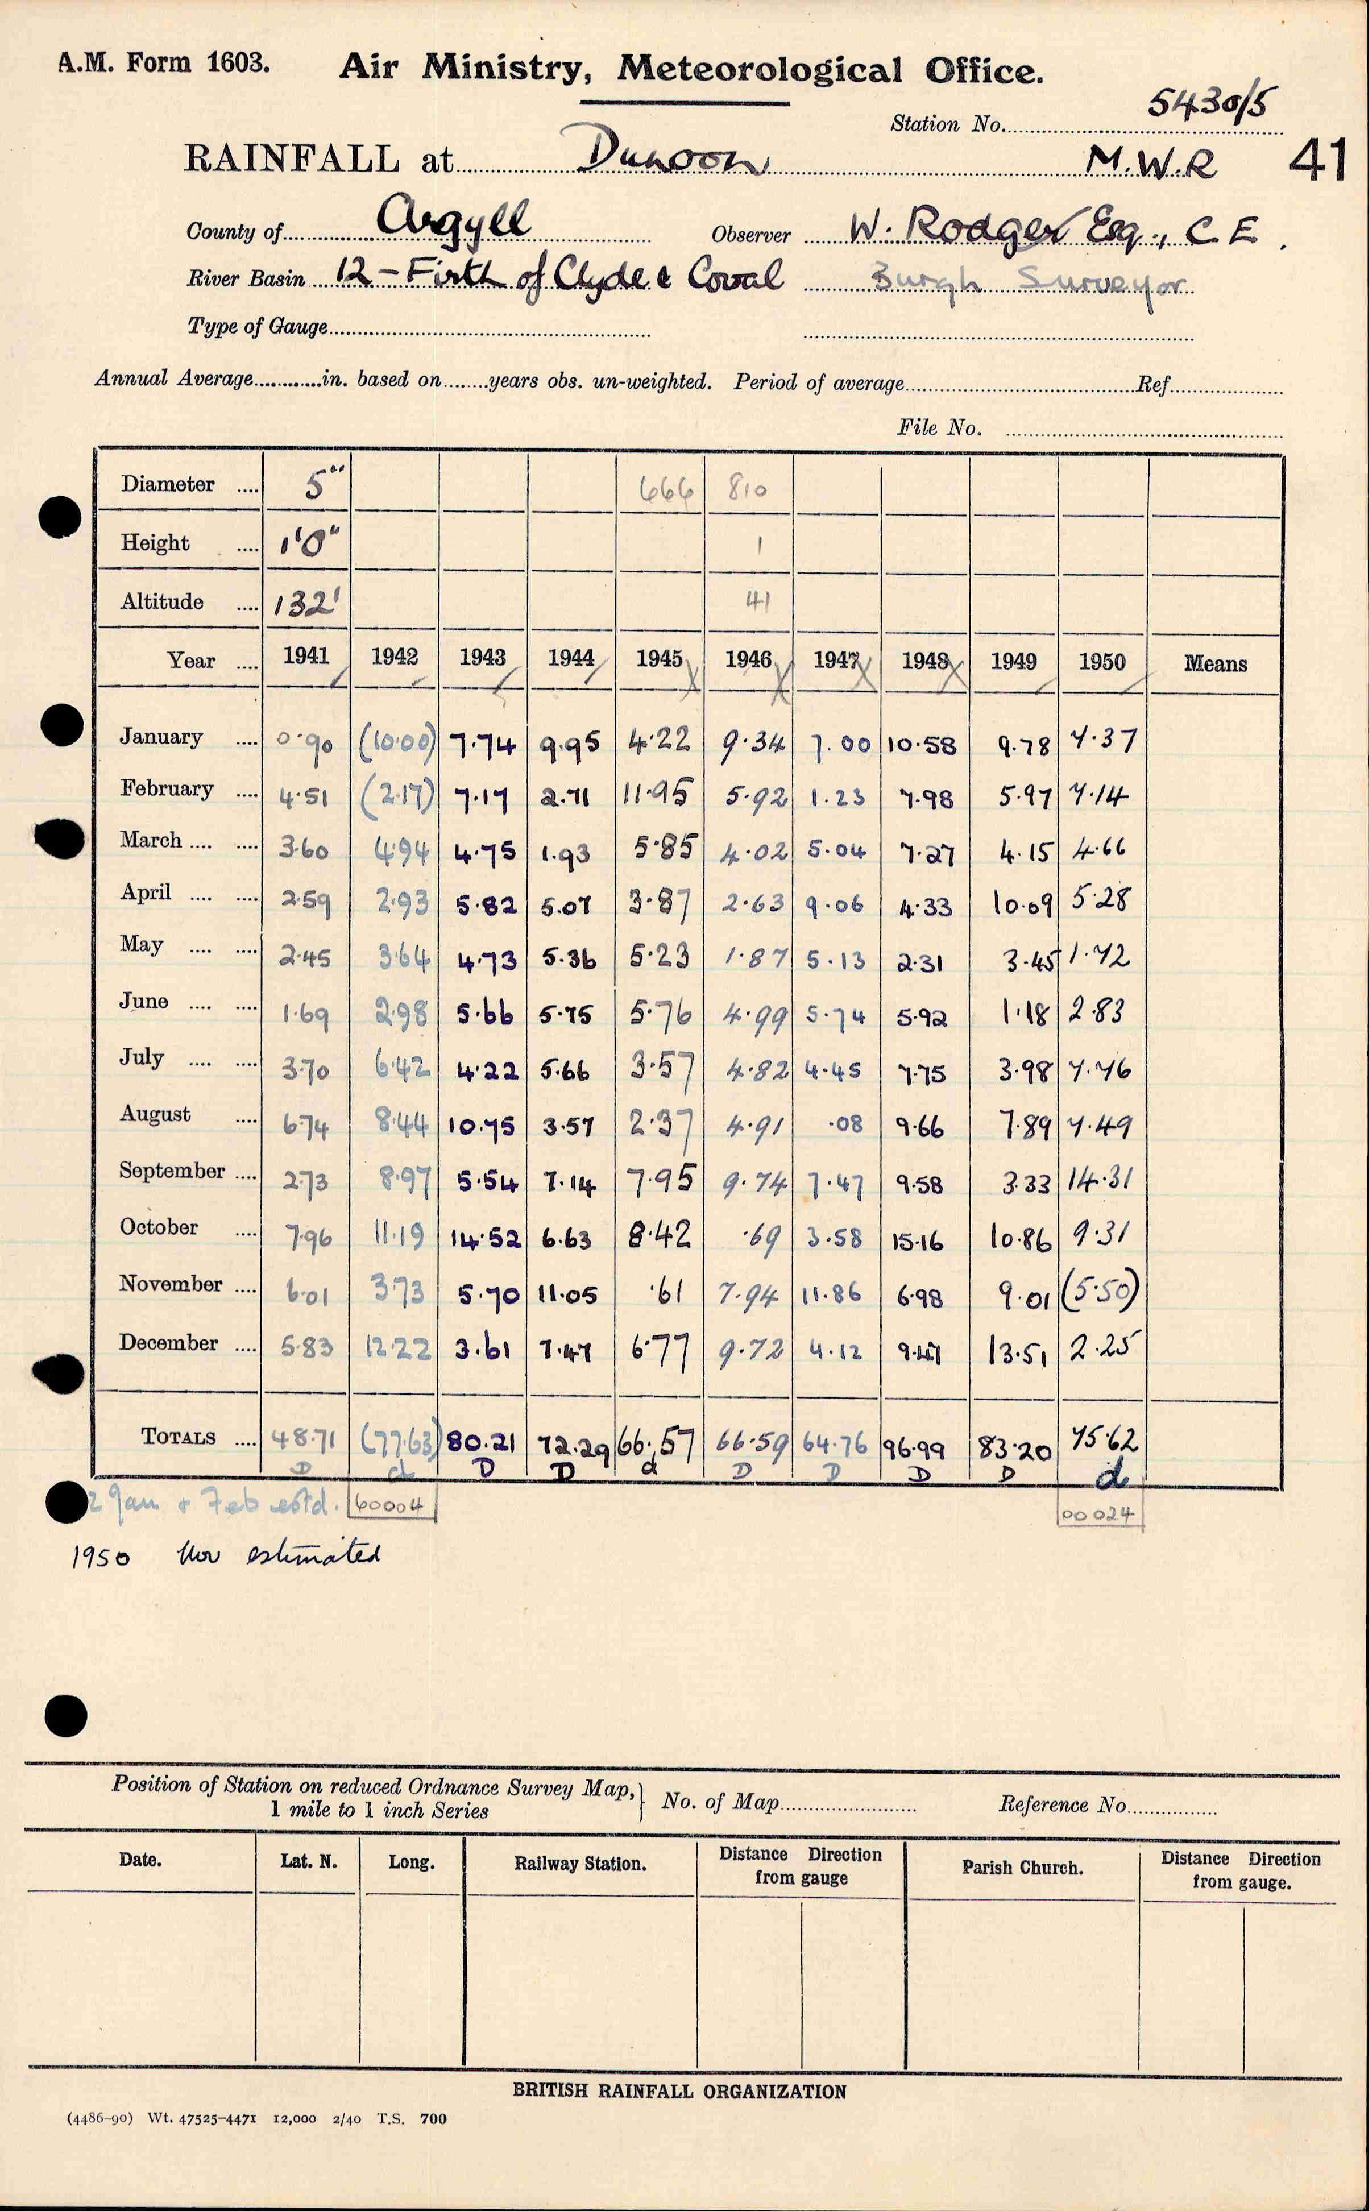 A.M. Form 1603. Air Ministry, Meteorological Office.
Station No. 5430/5
RAINFALL at Dunoon M.W.R 41
County of Argyll Observer W. Rodger Esq., C.E.
River Basin 12 - Firth of Clyde & Cowal Burgh Surveyor
Type of Gauge
Annual Average in. based on years obs. un-weighted. Period of average Ref.
File No.
Diameter 5" 666 810
Height 1'0" 1
Altitude 132' 41
Year 1941 1942 1943 1944 1945 1946 1947 1948 1949 1950 Means
January 0.90 (10.00) 7.74 9.95 4.22 9.34 7.00 10.58 9.78 7.37
February 4.51 (2.17) 7.17 2.71 11.95 5.92 1.23 7.98 5.97 7.14
March 3.60 4.94 4.75 1.93 5.85 4.02 5.04 7.27 4.15 4.66
April 2.59 2.93 5.82 5.07 3.87 2.63 9.06 4.33 10.09 5.28
May 2.45 3.64 4.73 5.36 5.23 1.87 5.13 2.31 3.45 1.72
June 1.69 2.98 5.66 5.75 5.76 4.99 5.74 5.92 1.18 2.83
July 3.70 6.42 4.22 5.66 3.57 4.82 4.45 7.75 3.98 7.76
August 6.74 8.44 10.75 3.57 2.37 4.91 .08 9.66 7.89 7.49
September 2.73 8.97 5.54 7.14 7.95 9.74 7.47 9.58 3.33 14.31
October 7.96 11.19 14.52 6.63 8.42 .69 3.58 15.16 10.86 9.31
November 6.01 3.73 5.70 11.05 .61 7.94 11.86 6.98 9.01 (5.50)
December 5.83 12.22 3.61 7.47 6.77 9.72 4.12 9.47 13.51 2.25
TOTALS 48.71 (77.63) 80.21 72.29 66.57 66.59 64.76 96.99 83.20 75.62
D d D D d D D D D d
2 Jan & Feb estd. 60004 00024
1950 Nov estimated
Position of Station on reduced Ordnance Survey Map, } No. of Map Reference No.
1 mile to 1 inch Series
Date. Lat. N. Long. Railway Station. Distance Direction from gauge Parish Church. Distance Direction from gauge.
BRITISH RAINFALL ORGANIZATION
(4486-90) Wt. 47525-4471 12,000 2/40 T.S. 700